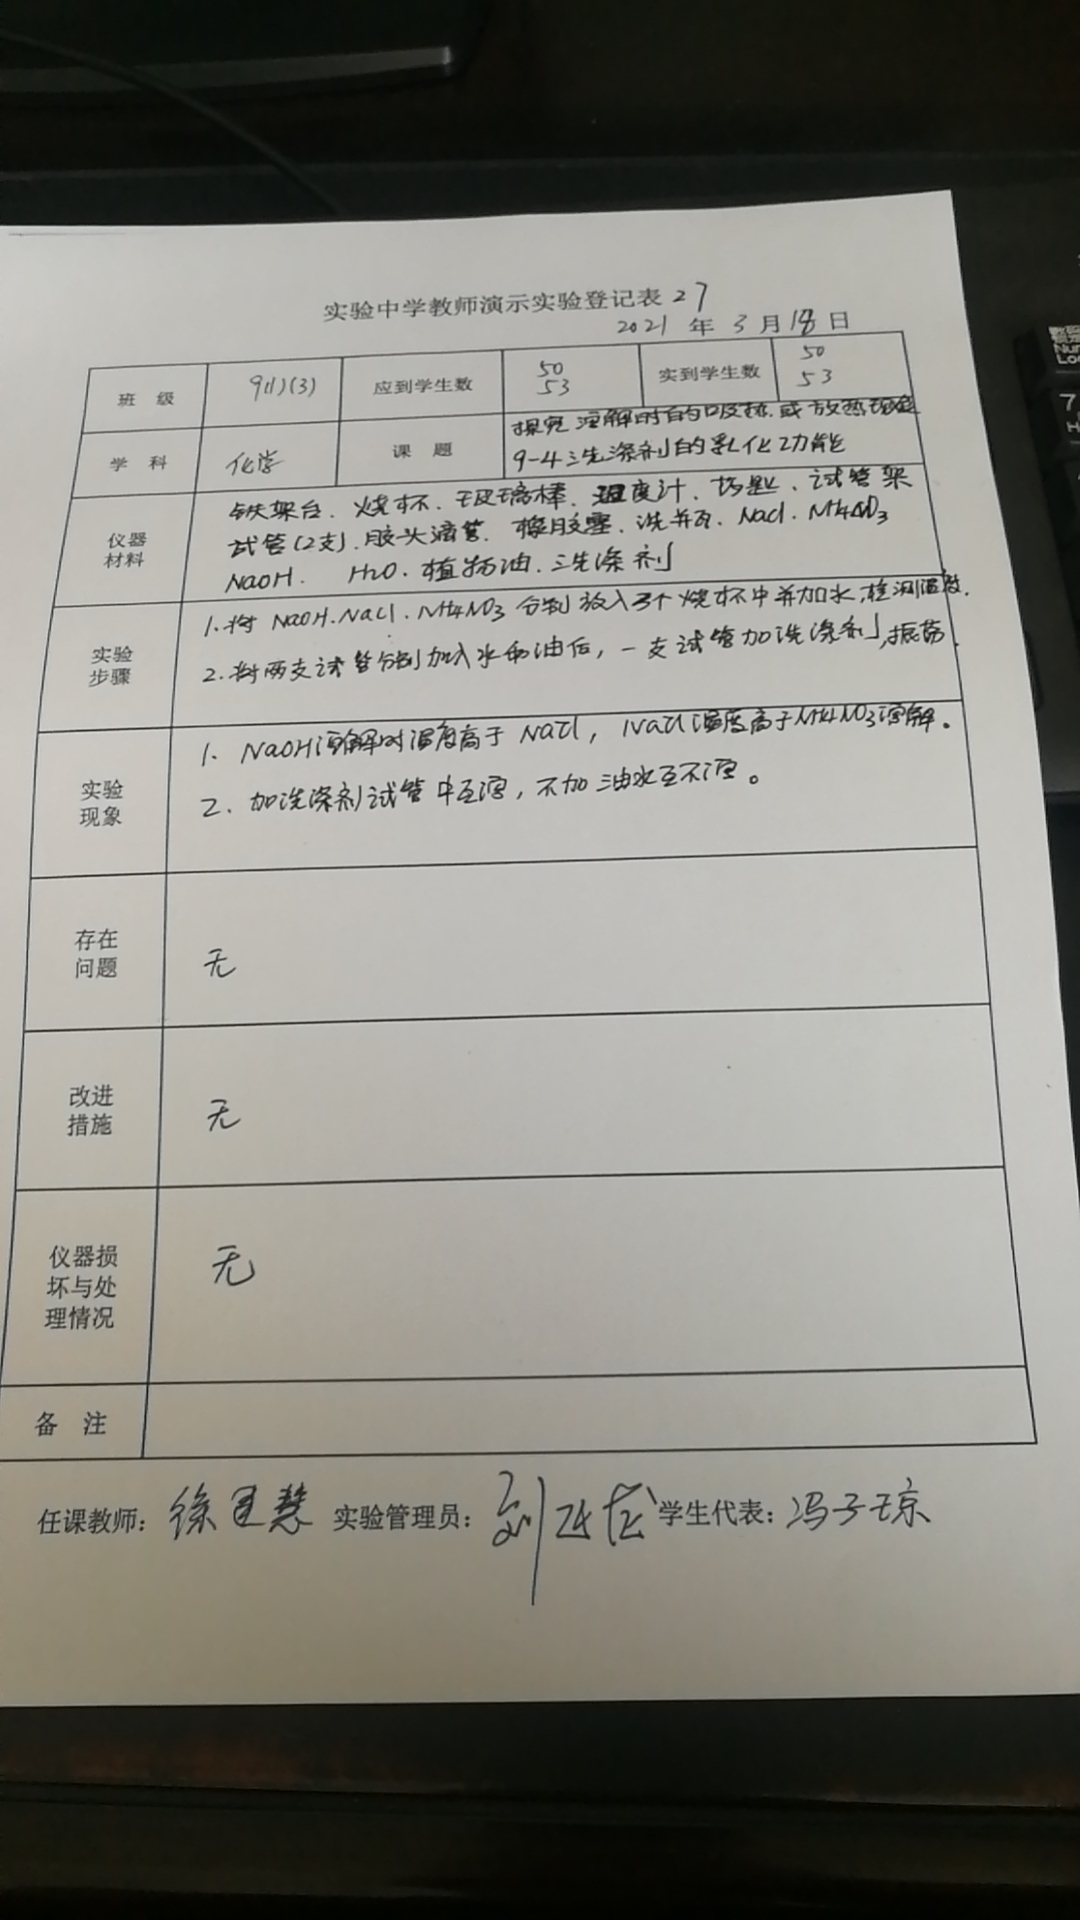 实验中学教师演示实验登记表 27
2021 年 3 月 18 日
班 级 9(1)(3) 应到学生数 50 53 实到学生数 50 53
学 科 化学 课 题 探究溶解时的吸热或放热现象
9-4 洗涤剂的乳化功能
仪器
材料
铁架台、烧杯、玻璃棒、温度计、药匙、试管架
试管(2支)、胶头滴管、橡胶塞、洗并瓦、NaCl、NH4NO3
NaOH、 H2O、植物油、洗涤剂
实验
步骤
1.将 NaOH、NaCl、NH4NO3 分别放入3个烧杯中并加水,检测温度.
2.将两支试管分别加入水和油后,一支试管加洗涤剂,振荡.
实验
现象
1. NaOH溶解时温度高于 NaCl, NaCl温度高于NH4NO3溶解。
2. 加洗涤剂试管中互溶,不加油水互不溶。
存在
问题
无
改进
措施
无
仪器损
坏与处
理情况
无
备 注
任课教师: 徐 慧 实验管理员: 刘 学生代表: 冯子琼
Num
Lo
7
H